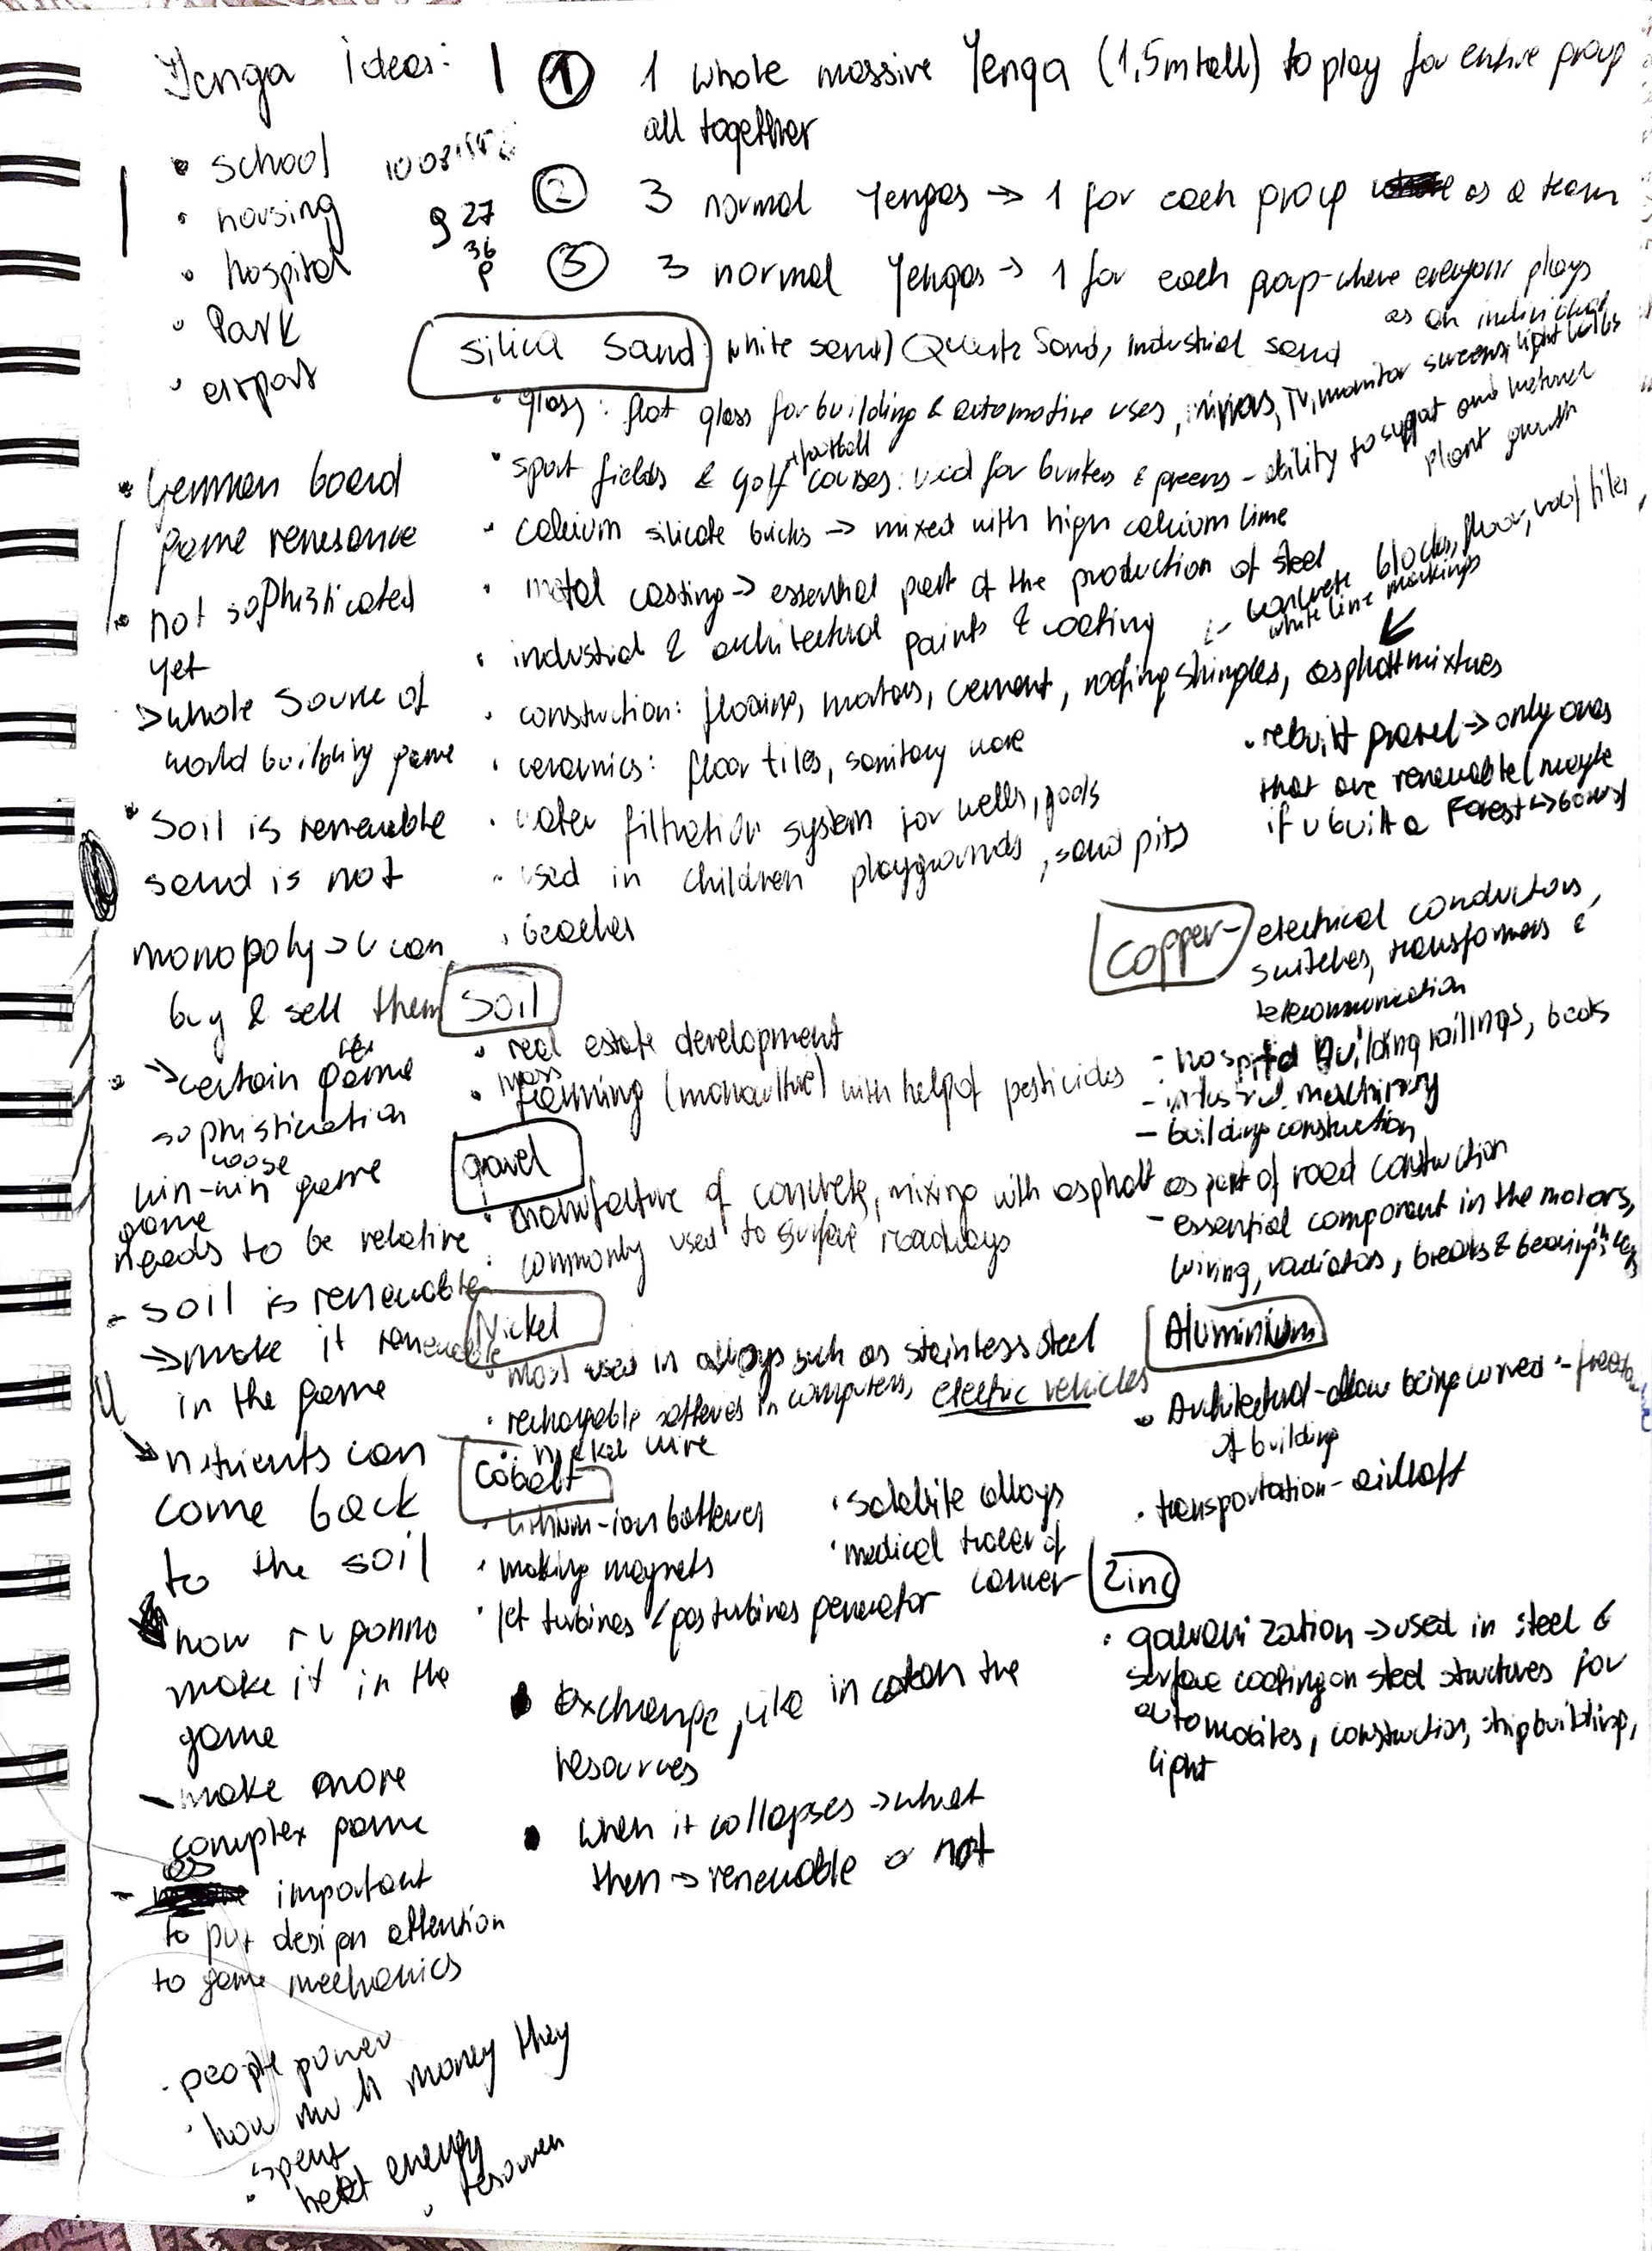 Yenga ideas:
• school
• housing
• hospital
• Park
• airport
9 27
36
① 1 whole massive Yenga (1,5m tall) to play for entire group
all together
② 3 normal Yengas → 1 for each group as a team
③ 3 normal Yengas → 1 for each group - where everyone plays
as an individual
• German board
game renesance
• not sophisticated
yet
→ whole source of
world building game
• Soil is renewable
sand is not
monopoly → u can
buy & sell them
• → certain game
sophistication
win-win game
loose
game
needs to be relative
- soil is renewable
→ make it renewable
in the game
→ nutrients can
come back
to the soil
how r u gonna
make it in the
game
- make more
complex game
as
- important
to put design attention
to game mechanics
• people power
• how much money they
spent
• heat energy
• resources
Silica Sand white sand/ Quartz Sand, industrial sand
• glass: flat glass for building & automotive uses, mirrors, TV, monitor screens, light bulbs
+ football
• sport fields & golf courses: used for bunkers & greens - ability to support and
plant growth
• calcium silicate bricks → mixed with high calcium lime
• metal casting → essential part of the production of steel
• industrial & architectural paints & coating
- concrete blocks, floor, roof tiles,
white line markings
• construction: flooring, mortars, cement, roofing shingles, asphalt mixtures
• ceramics: floor tiles, sanitary ware
• water filtration system for wells, pools
• used in children playgrounds, sand pits
• beaches
• rebuilt gravel → only ones
that are renewable (maybe
if u built a Forest → bonus)
Soil
• real estate development
mass
• farming (monoculture) with help of pesticides
gravel
• manufacture of concrete, mixing with asphalt as part of road construction
• commonly used to surface roadways
Nickel
• most used in alloys such as stainless steel
• rechargable batteries in computers, electric vehicles
• nickel wire
Cobalt
• lithium-ion batteries
• making magnets
• jet turbines / gas turbines generator
• satellite alloys
• medical tracer of
cancer
• Exchange, like in catan the
resources
• When it collapses → what
then → renewable or not
Copper - electrical conductors,
switches, transformers &
telecommunication
- hospital building railings, beds
- industrial machinery
- building construction
- essential component in the motors,
wiring, radiators, breaks & bearings
Aluminium
• Architectural - allow being curved -
of building
• transportation - aircraft
Zinc
• galvanization → used in steel &
surface coating on steel structures for
automobiles, construction, shipbuilding,
light